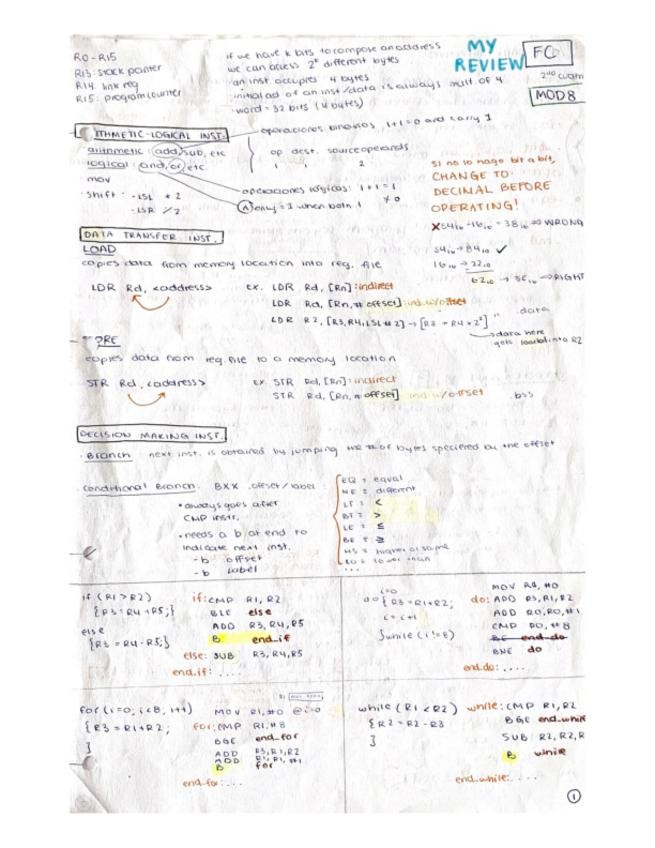 R0-R15
R13: stack pointer
R14: link reg
R15: program counter
if we have k bits to compose an address
we can access 2^k different bytes
·an inst. occupies 4 bytes
·initial ad of an inst/data is always mult. of 4
·word = 32 bits (4 bytes)
MY
REVIEW
FC
2nd cuatri
MOD 8
ITHMETIC-LOGICAL INST.
arithmetic: add, sub, etc
logical: and, or, etc
· mov
· shift · -LSL * 2
-LSR / 2
operaciones binarios, 1+1=0 and carry 1
op dest. source operands
1 1 2
operaciones lógicas: 1+1=1
only=1 when both 1
si no lo hago bit a bit,
CHANGE TO
DECIMAL BEFORE
OPERATING!
WRONG
RIGHT
DATA TRANSFER INST.
LOAD
copies data from memory location into reg. file
LDR Rd, <address>
ex. LDR Rd, [Rn]: indirect
LDR Rd, [Rn, # offset] ind. w/offset
LDR R2, [R3, R4, LSL # 2] → [R3 + R4 * 2²]
.data
data here
gets loaded into R2
ORE
copies data from reg. file to a memory location
STR Rd, <address>
ex. STR Rd, [Rn]: indirect
STR Rd, [Rn, # offset] ind. w/offset
.bss
DECISION MAKING INST.
· Branch next inst. is obtained by jumping the # of bytes specified by the offset
· Conditional Branch: BXX offset/label:
• always goes after
CMP instr.
• needs a b at end to
indicate next inst.
- b offset
- b label
EQ = equal
NE = different
LT = <
BT = >
LE = ≤
BE = ≥
HS = higher or same
LO = lower than
...
if (R1 > R2)
{R3 = R4 + R5;}
else
{R3 = R4 - R5;}
if: CMP R1, R2
BLE else
ADD R3, R4, R5
B end_if
else: SUB R3, R4, R5
end_if: ....
i=0
do { R3 = R1+R2;
i = i+1
}while (i != 8)
MOV R0, #0
do: ADD R3, R1, R2
ADD R0, R0, #1
CMP R0, # 8
BE end_do
BNE do
end_do: ....
for (i=0; i<8, i++)
{R3 = R1 + R2;
}
MOV R1, #0 @i=0
for: CMP R1, # 8
BGE end_for
ADD R3, R1, R2
ADD R1, R1, #1
B for
end_for: ....
while (R1 < R2)
{R2 = R2 - R3
}
while: CMP R1, R2
BGE end_whil
SUB R2, R2, R
B while
end_while: ....
1